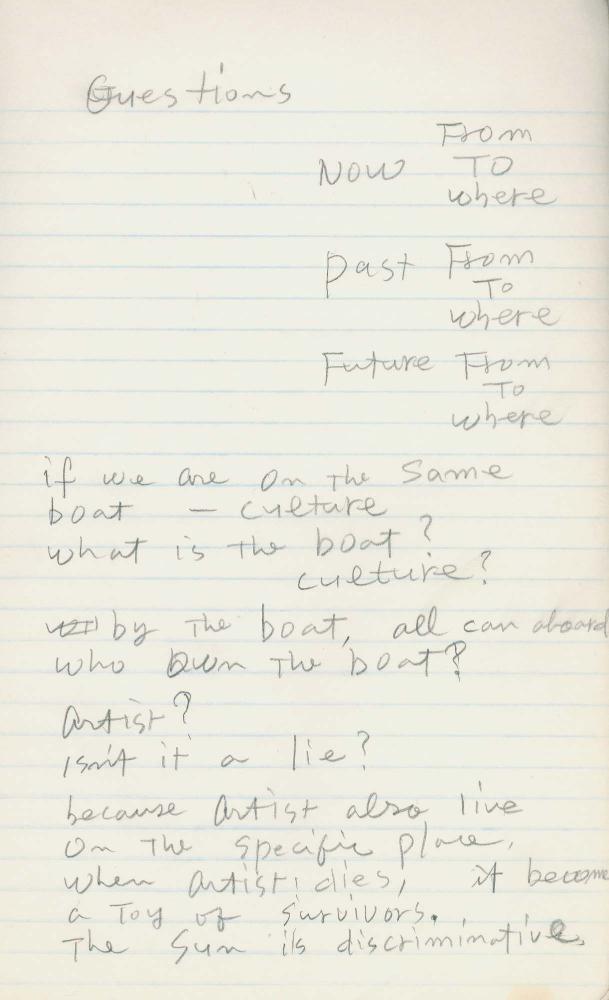 Questions
From
Now TO
where
past From
To
where
Future From
To
where
if we are on the same
boat — culture
what is the boat?
culture?
by the boat, all can aboard
who own the boat?
Artist?
isn't it a lie?
because artist also live
on the specific place,
when artist dies, it become
a Toy of survivors.
The Sun is discriminative.